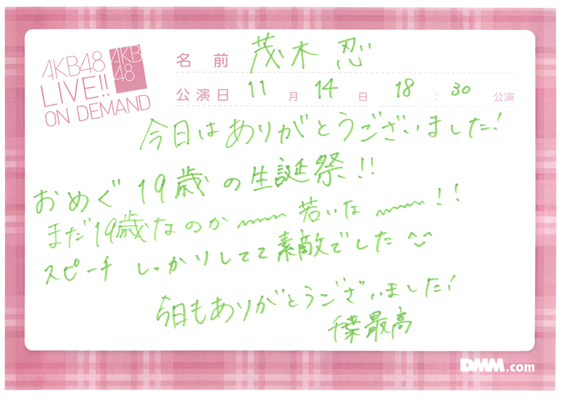 AKB48
LIVE!!
ON DEMAND
AKB
48
名前 茂木 忍
公演日 11月 14日 18:30 公演
今日はありがとうございました!
おめぐ19歳の生誕祭!!
まだ19歳なのか〰〰 若いな〰〰!!
スピーチ しっかりしてて素敵でした
今日もありがとうございました!
千葉最高
DMM.com